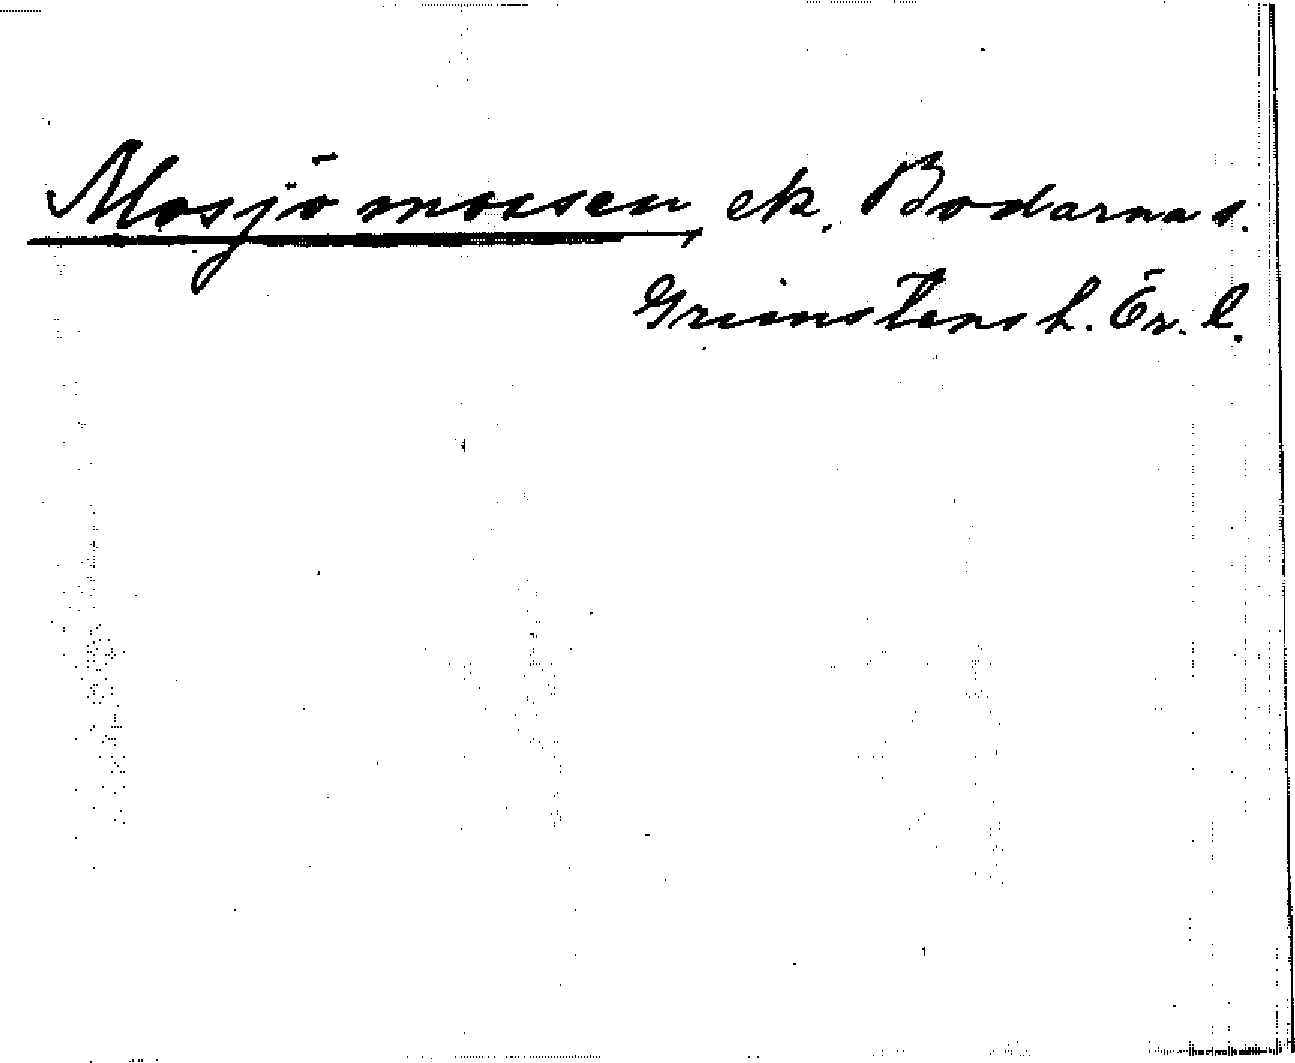 Mosjömossen, ek. Bodarnas.
Grimstens h. Ör. l.